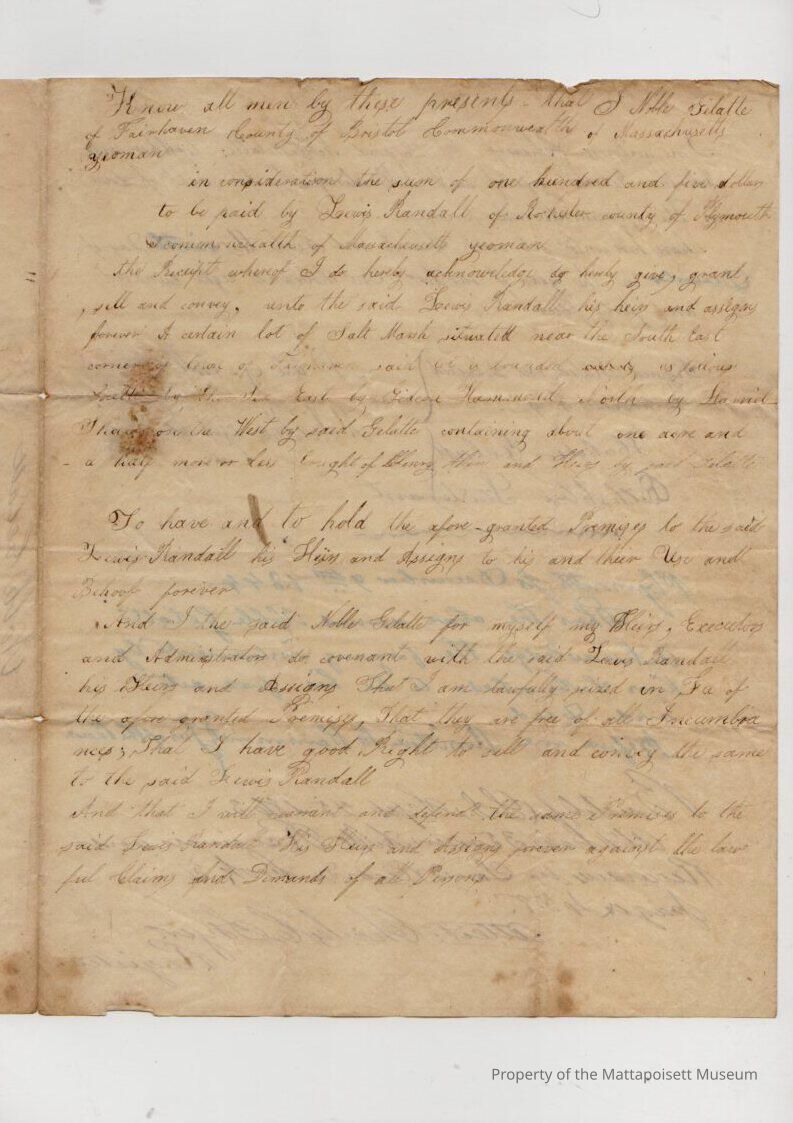 Know all men by these presents that I Noble Gelatte
of Fairhaven County of Bristol Commonwealth of Massachusetts
yeoman
in consideration the sum of one hundred and five dollars
to be paid by Lewis Randall of Rochester county of Plymouth
& commonwealth of Massachusetts yeoman
the Receipt whereof I do hereby acknowledge do hereby give, grant,
sell and convey, unto the said Lewis Randall his heirs and assigns
forever A certain lot of Salt Marsh situated near the South East
corner of town of Fairhaven said is bounded as follows
South by the East by Hammond North by
the West by said Gelatte containing about one acre and
a half more or less bought of Henry and Heirs by said Gelatte
To have and to hold the afore-granted Premises to the said
Lewis Randall his Heirs and Assigns to his and their Use and
Behoof forever
And I the said Noble Gelatte for myself my Heirs, Executors
and Administrators do covenant with the said Lewis Randall
his Heirs and Assigns That I am lawfully seized in Fee of
the afore granted Premises, That they are free of all Incumbra
nces; That I have good Right to sell and convey the same
to the said Lewis Randall
And that I will warrant and defend the same Premises to the
said Lewis Randall His Heirs and Assigns forever against the law
ful Claims and Demands of all Persons
Property of the Mattapoisett Museum